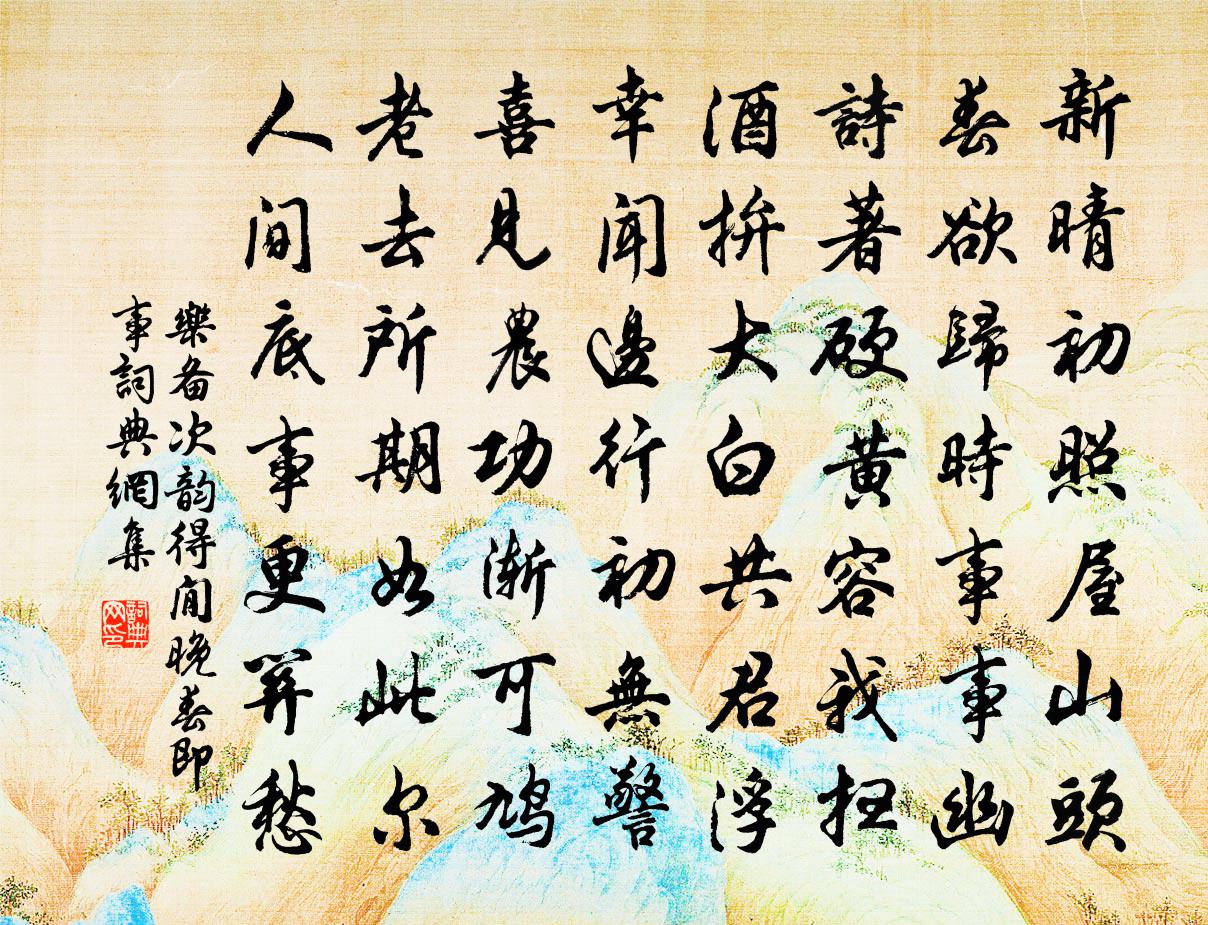 新晴初照屋山頭
春欲歸時事事幽
詩著硬黃容我掃
酒拚大白共君浮
幸聞邊行初無警
喜見農功漸可鳩
老去所期如此尔
人間底事更關愁
樂备次韵得閒晚春即
事詞典網集
詞典网印